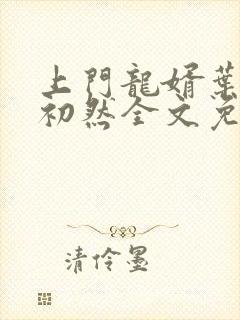 上門龍婿葉
初然全文免
清伶墨